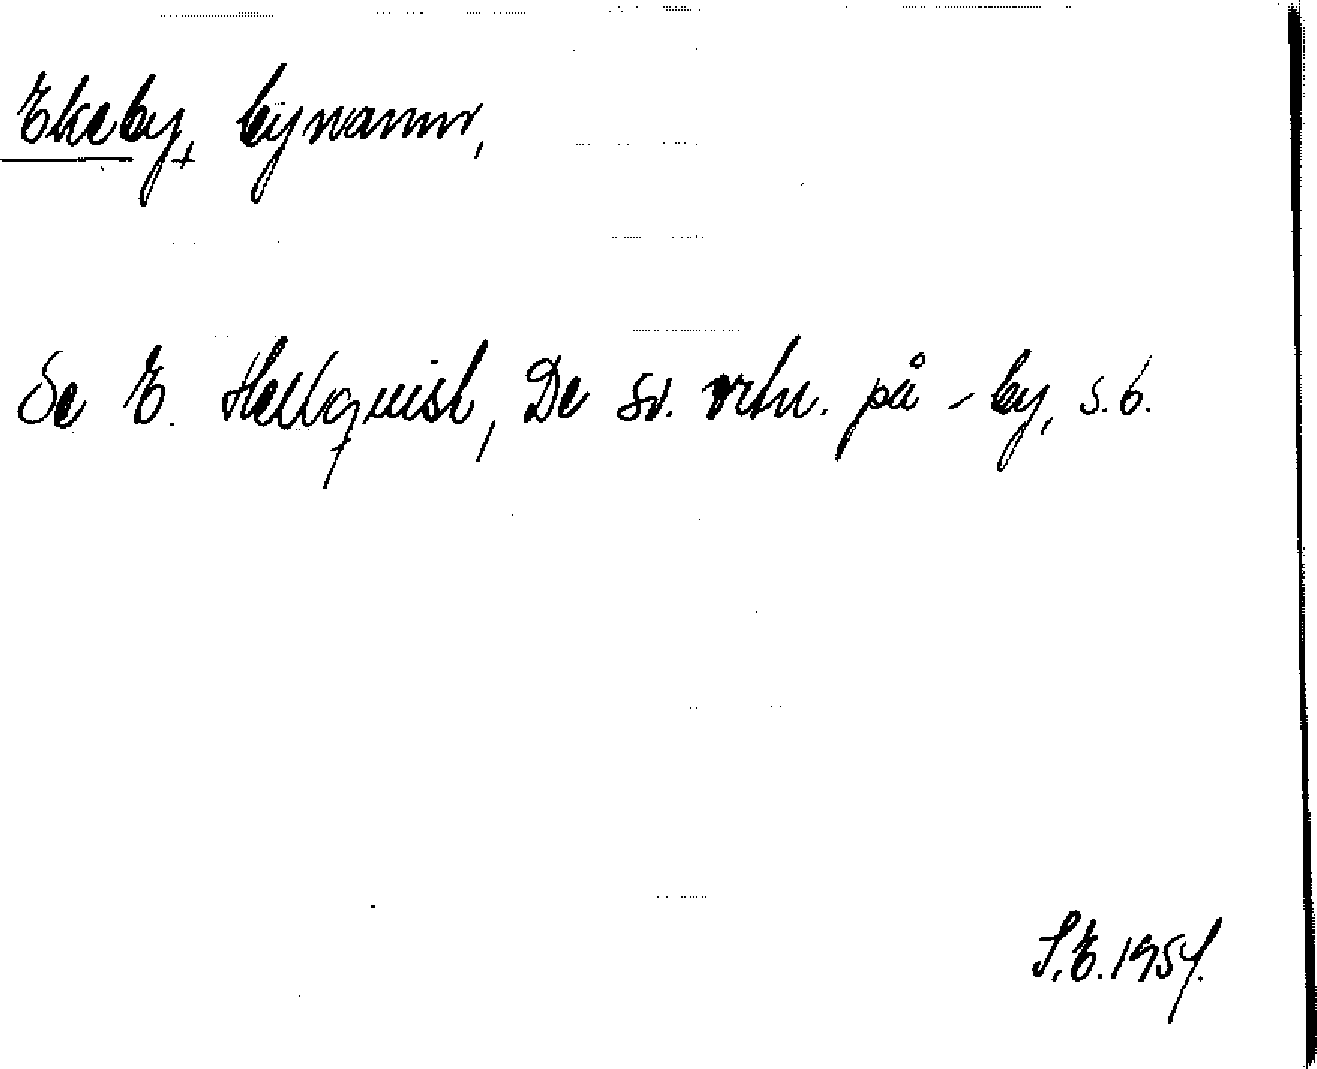 Ekeby, bynamn,
Se E. Hellquist, De sv. ortn. på -by, s. 6.
S.E. 1954.